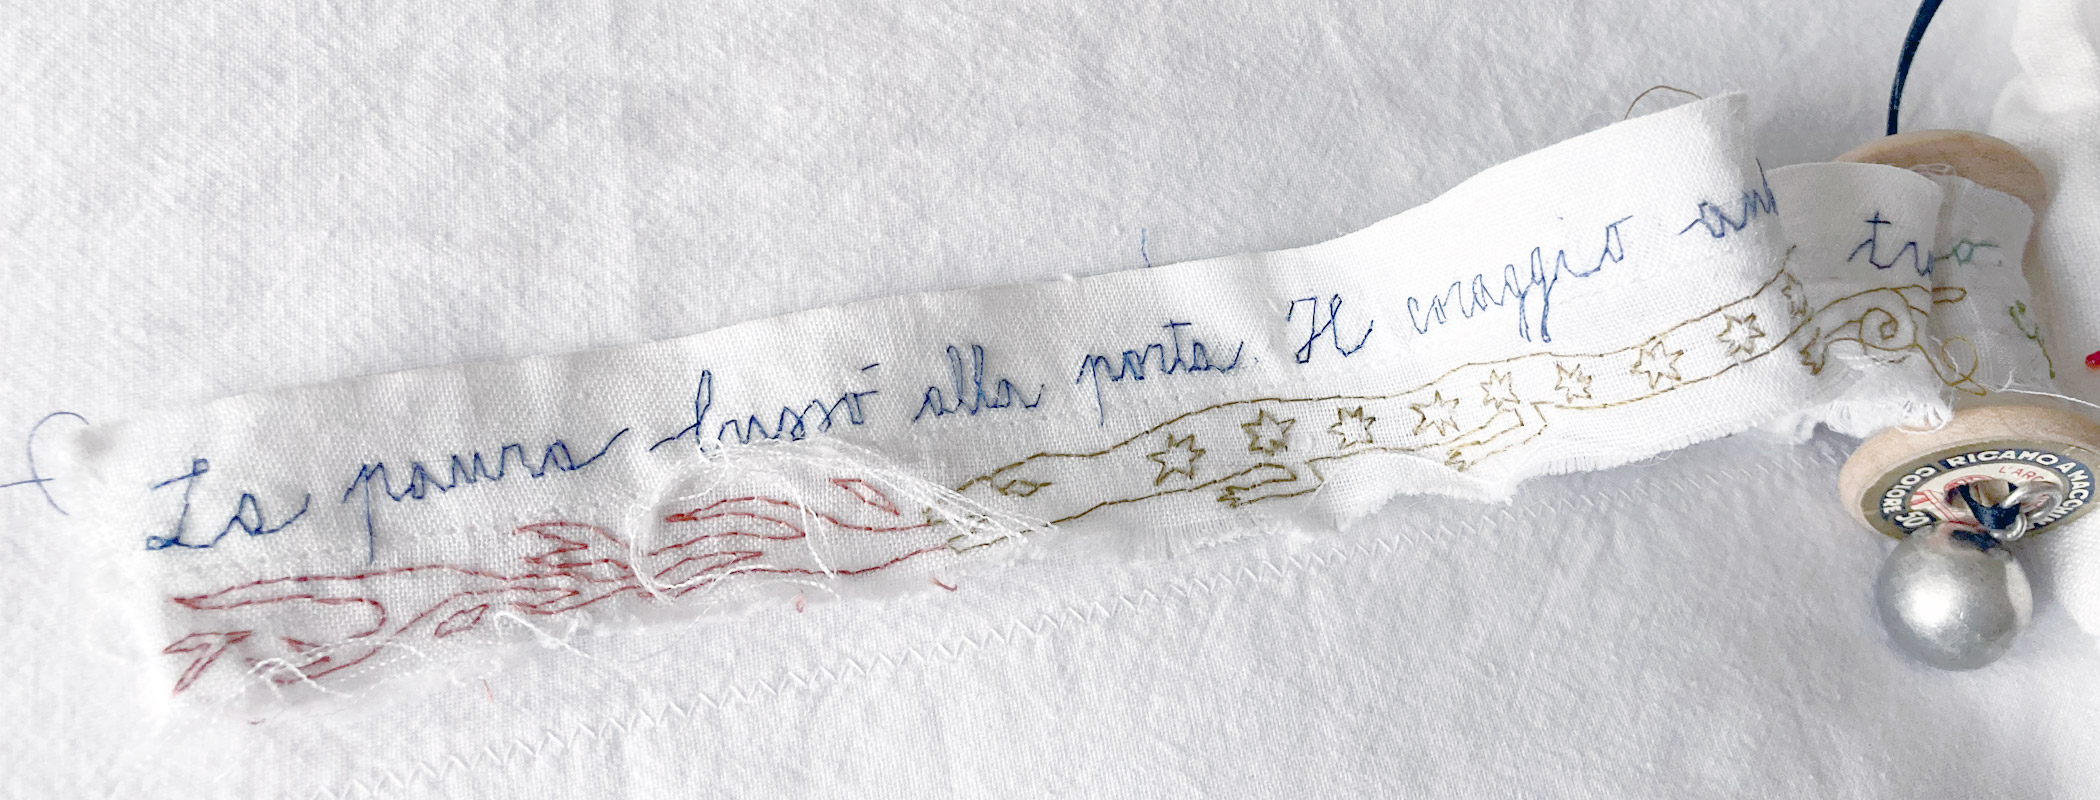 La paura bussò alla porta Il coraggio an
RICAMO A MACCHIN
COLORE
L'ARC